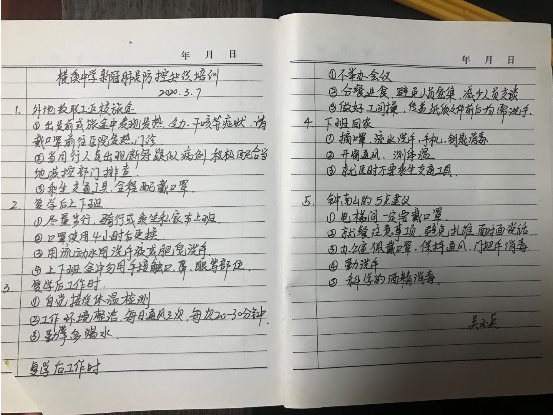 年 月 日
横溪中学新冠肺炎防控处置培训
2020.3.7
1. 外地教职工返校旅途
①出发前或旅途中发现发热、乏力、干咳等症状，请
戴口罩前往医院发热门诊
②当同行人员出现新冠疑似病例，积极配合当
地疾控部门排查！
③乘坐交通工具，全程配戴口罩
2. 复学后上下班
①尽量步行、骑行或乘坐私家车上班
②口罩使用4小时后更换
③用流动水用洗手液或肥皂洗手
④上下班途中勿用手接触口、鼻、眼等部位
3. 复学后工作时
①自觉接受体温检测
②工作环境清洁，每日通风3次，每次20-30分钟
③勤洗手多喝水
复学后工作时
年 月 日
①不举办会议
②分餐进食，避免人员密集，减少人员交谈
③做好工间操，传递纸质文件前后均需洗手
4. 下班回家
①摘口罩，流水洗手，手机、钥匙消毒
②开窗通风，测体温
③就医时不要乘坐交通工具
5. 钟南山的5点建议
①电梯间一定要戴口罩
②就餐注意事项，避免扎堆，面对面说话
③办公佩戴口罩，保持通风，门把手消毒
④勤洗手
⑤科学的酒精消毒